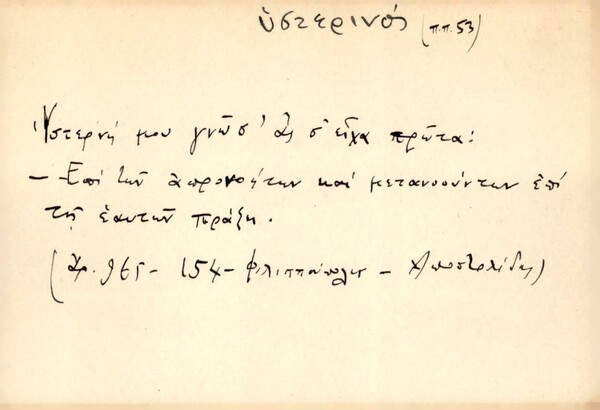 ὑστερινός (π.π. 53)
Ὑστερνή μου γνῶσ' ἂς σ' εἶχα πρῶτα!
– Ἐπί τῶν ἀπρονοήτων καί μετανοούντων ἐπί
τῇ ἑαυτῶν πράξει.
(Ἀρ. 965 – 154 – Φιλιππούπολις – Ἀποστολίδης)